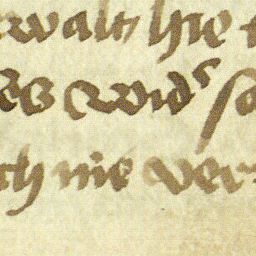 rwalt hie
es wids so
ch nie ver